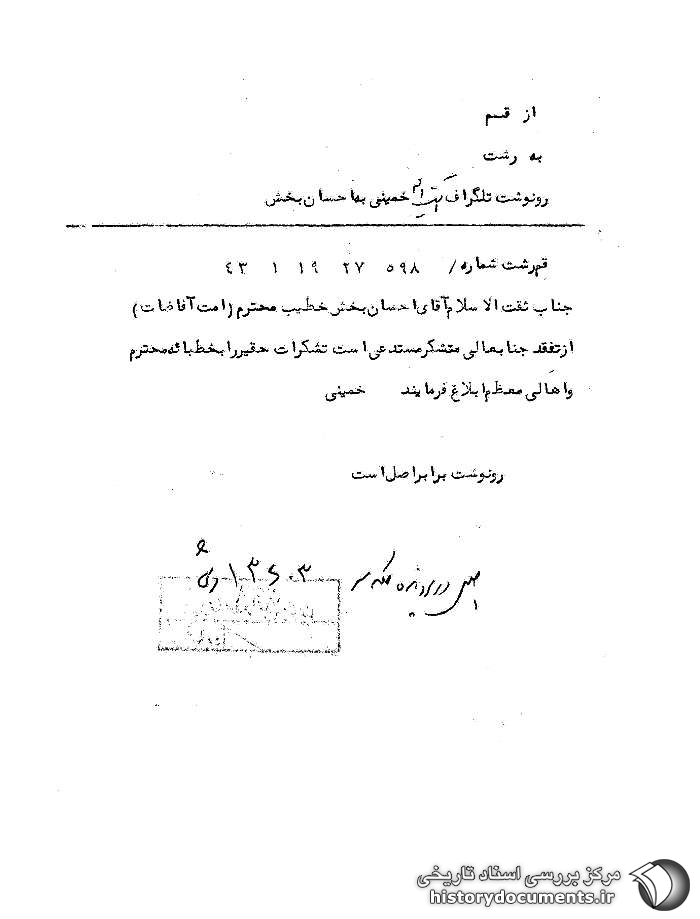 از قم
به رشت
رونوشت تلگراف آیت اله خمینی به احسان بخش
قم رشت شماره / ۵۹۸ ۲۷ ۱۹ ۱ ۴۳
جناب ثقت الاسلام آقای احسان بخش خطیب محترم (دامت آفاضات)
از تفقد جنابعالی متشکر مستدعی است تشکرات حقیر را بخطبائه محترم
و اهالی معظم ابلاغ فرمایند خمینی
رونوشت برابر اصل است
اصل در پرونده
مرکز بررسی اسناد تاریخی
historydocuments.ir